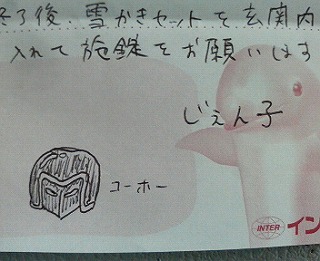 終了後 雪かきセットを玄関内
入れて施錠をお願いします
じぇん子
コーホー
INTER
イン